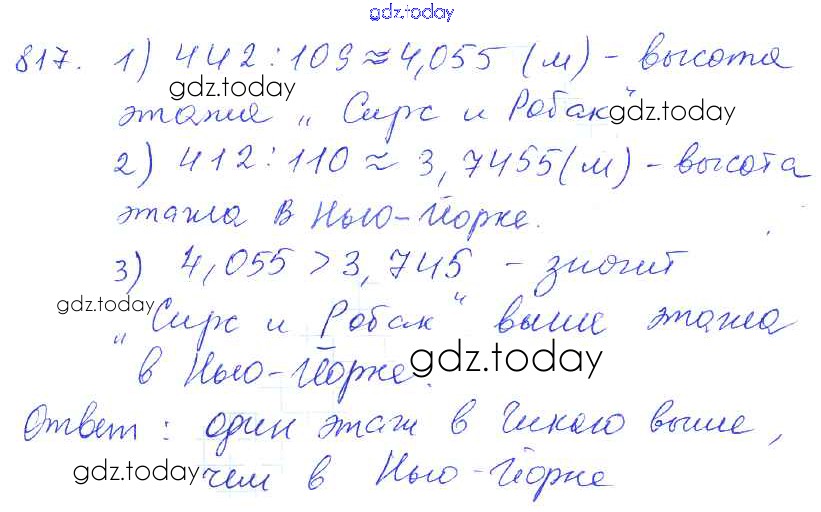 gdz.today
817. 1) 442 : 109 ≈ 4,055 (м) - высота
gdz.today
этажа „Сирс и Робак" gdz.today
2) 412 : 110 ≈ 3,7455 (м) - высота
этажа в Нью-Йорке.
3) 4,055 > 3,745 - значит
gdz.today
„Сирс и Робак" выше этажа
в Нью-Йорке. gdz.today
Ответ: один этаж в Чикаго выше,
gdz.today чем в Нью-Йорке